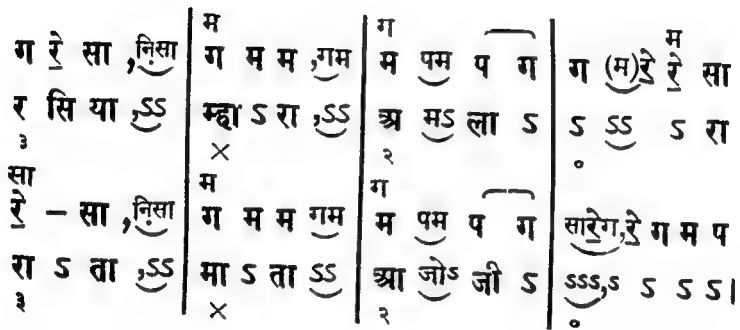 म ग म
ग रे॒ सा ,नि॒सा | ग म म ,गम | म पम प ग | ग (म)रे॒ रे॒ सा
र सि या ,ऽऽ | म्हा ऽ रा ,ऽऽ | अ मऽ ला ऽ | ऽ ऽऽ ऽ रा
३ × २ ०
सा म ग
रे॒ – सा ,नि॒सा | ग म म गम | म पम प ग | सारे॒ग,रे॒ ग म प
रा ऽ ता ,ऽऽ | मा ऽ ता ऽऽ | आ जोऽ जी ऽ | ऽऽऽ,ऽ ऽ ऽ ऽ।
३ × २ ०